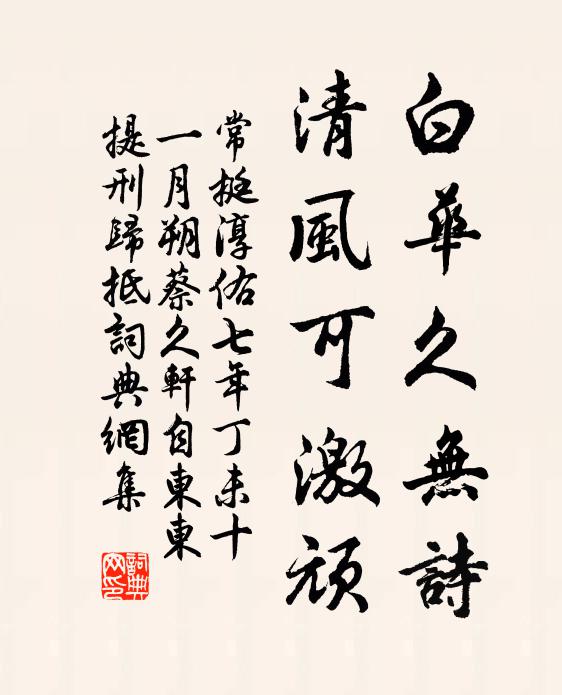 白華久無詩
清風可激頑
常挺淳佑七年丁未十
一月朔蔡久軒自東東
提刑歸抵詞典網集
詞典
网印